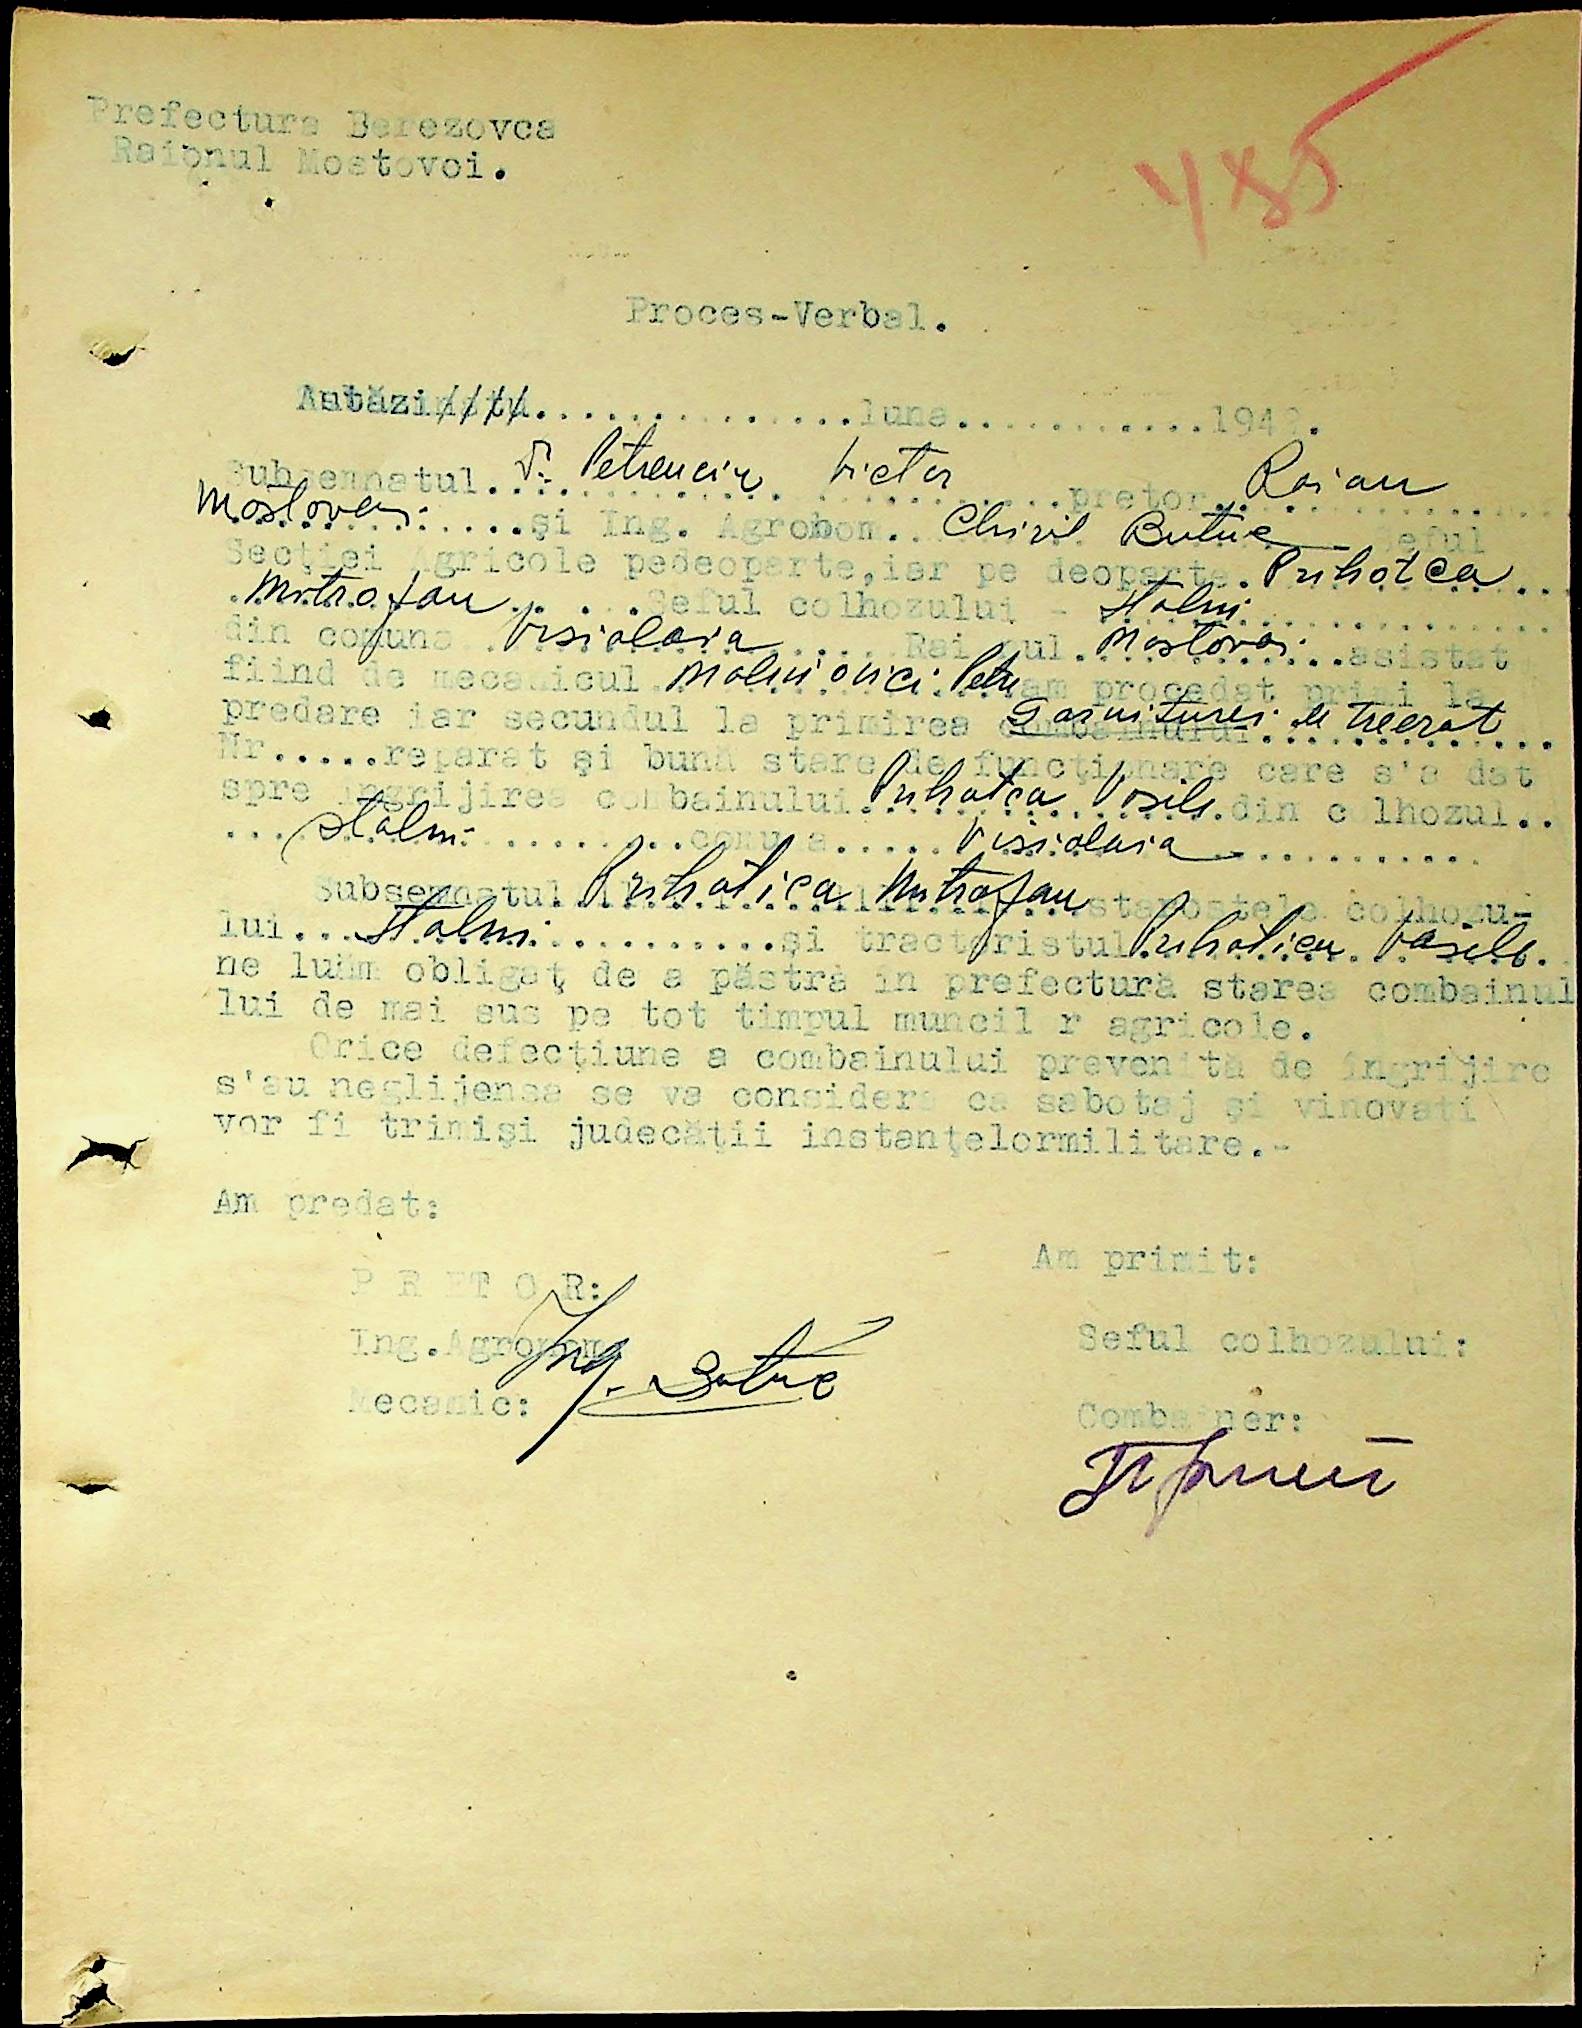 485
Prefectura Berezovca
Raionul Mostovoi.
Proces-Verbal.
Astăzi...............luna............194?.
Subsemnatul... Victor ...pretor.. Raian
Mostovoi.....și Ing. Agrobom.. Chiril Butuc Seful
Secției Agricole pedeoparte,iar pe deoparte. Prihotca ..
.Mitrofan. . . .Seful colhozului - Stalin.............
din comuna .Visiolaia..... Raionul.Mostovoi...asistat
fiind de mecanicul Petre am procedat primi la
predare iar secundul la primirea combainului Garniturei de treerat
Nr.....reparat și bună stare de funcționare care s'a dat
spre ingrijirea combainului.Prihotca Vasile.din colhozul..
...Stalin.........comuna..... Visiolaia...........
Subsemnatul Prihotica Mitrofan ...starostele colhozu-
lui...Stalin............și tractoristul Prihotica Vasile.
ne luăm obligaț de a păstra in prefectură starea combainul
lui de mai sus pe tot timpul muncil r agricole.
Orice defecțiune a combainului prevenită de îngrijire
s'au neglijensa se va considera ca sabotaj și vinovati
vor fi trimiși judecății instanțelormilitare.-
Am predat:
Am primit:
P R E T O R:
Ing.Agronom
Ing. Butuc
Seful colhozului:
Mecanic:
Combainer: